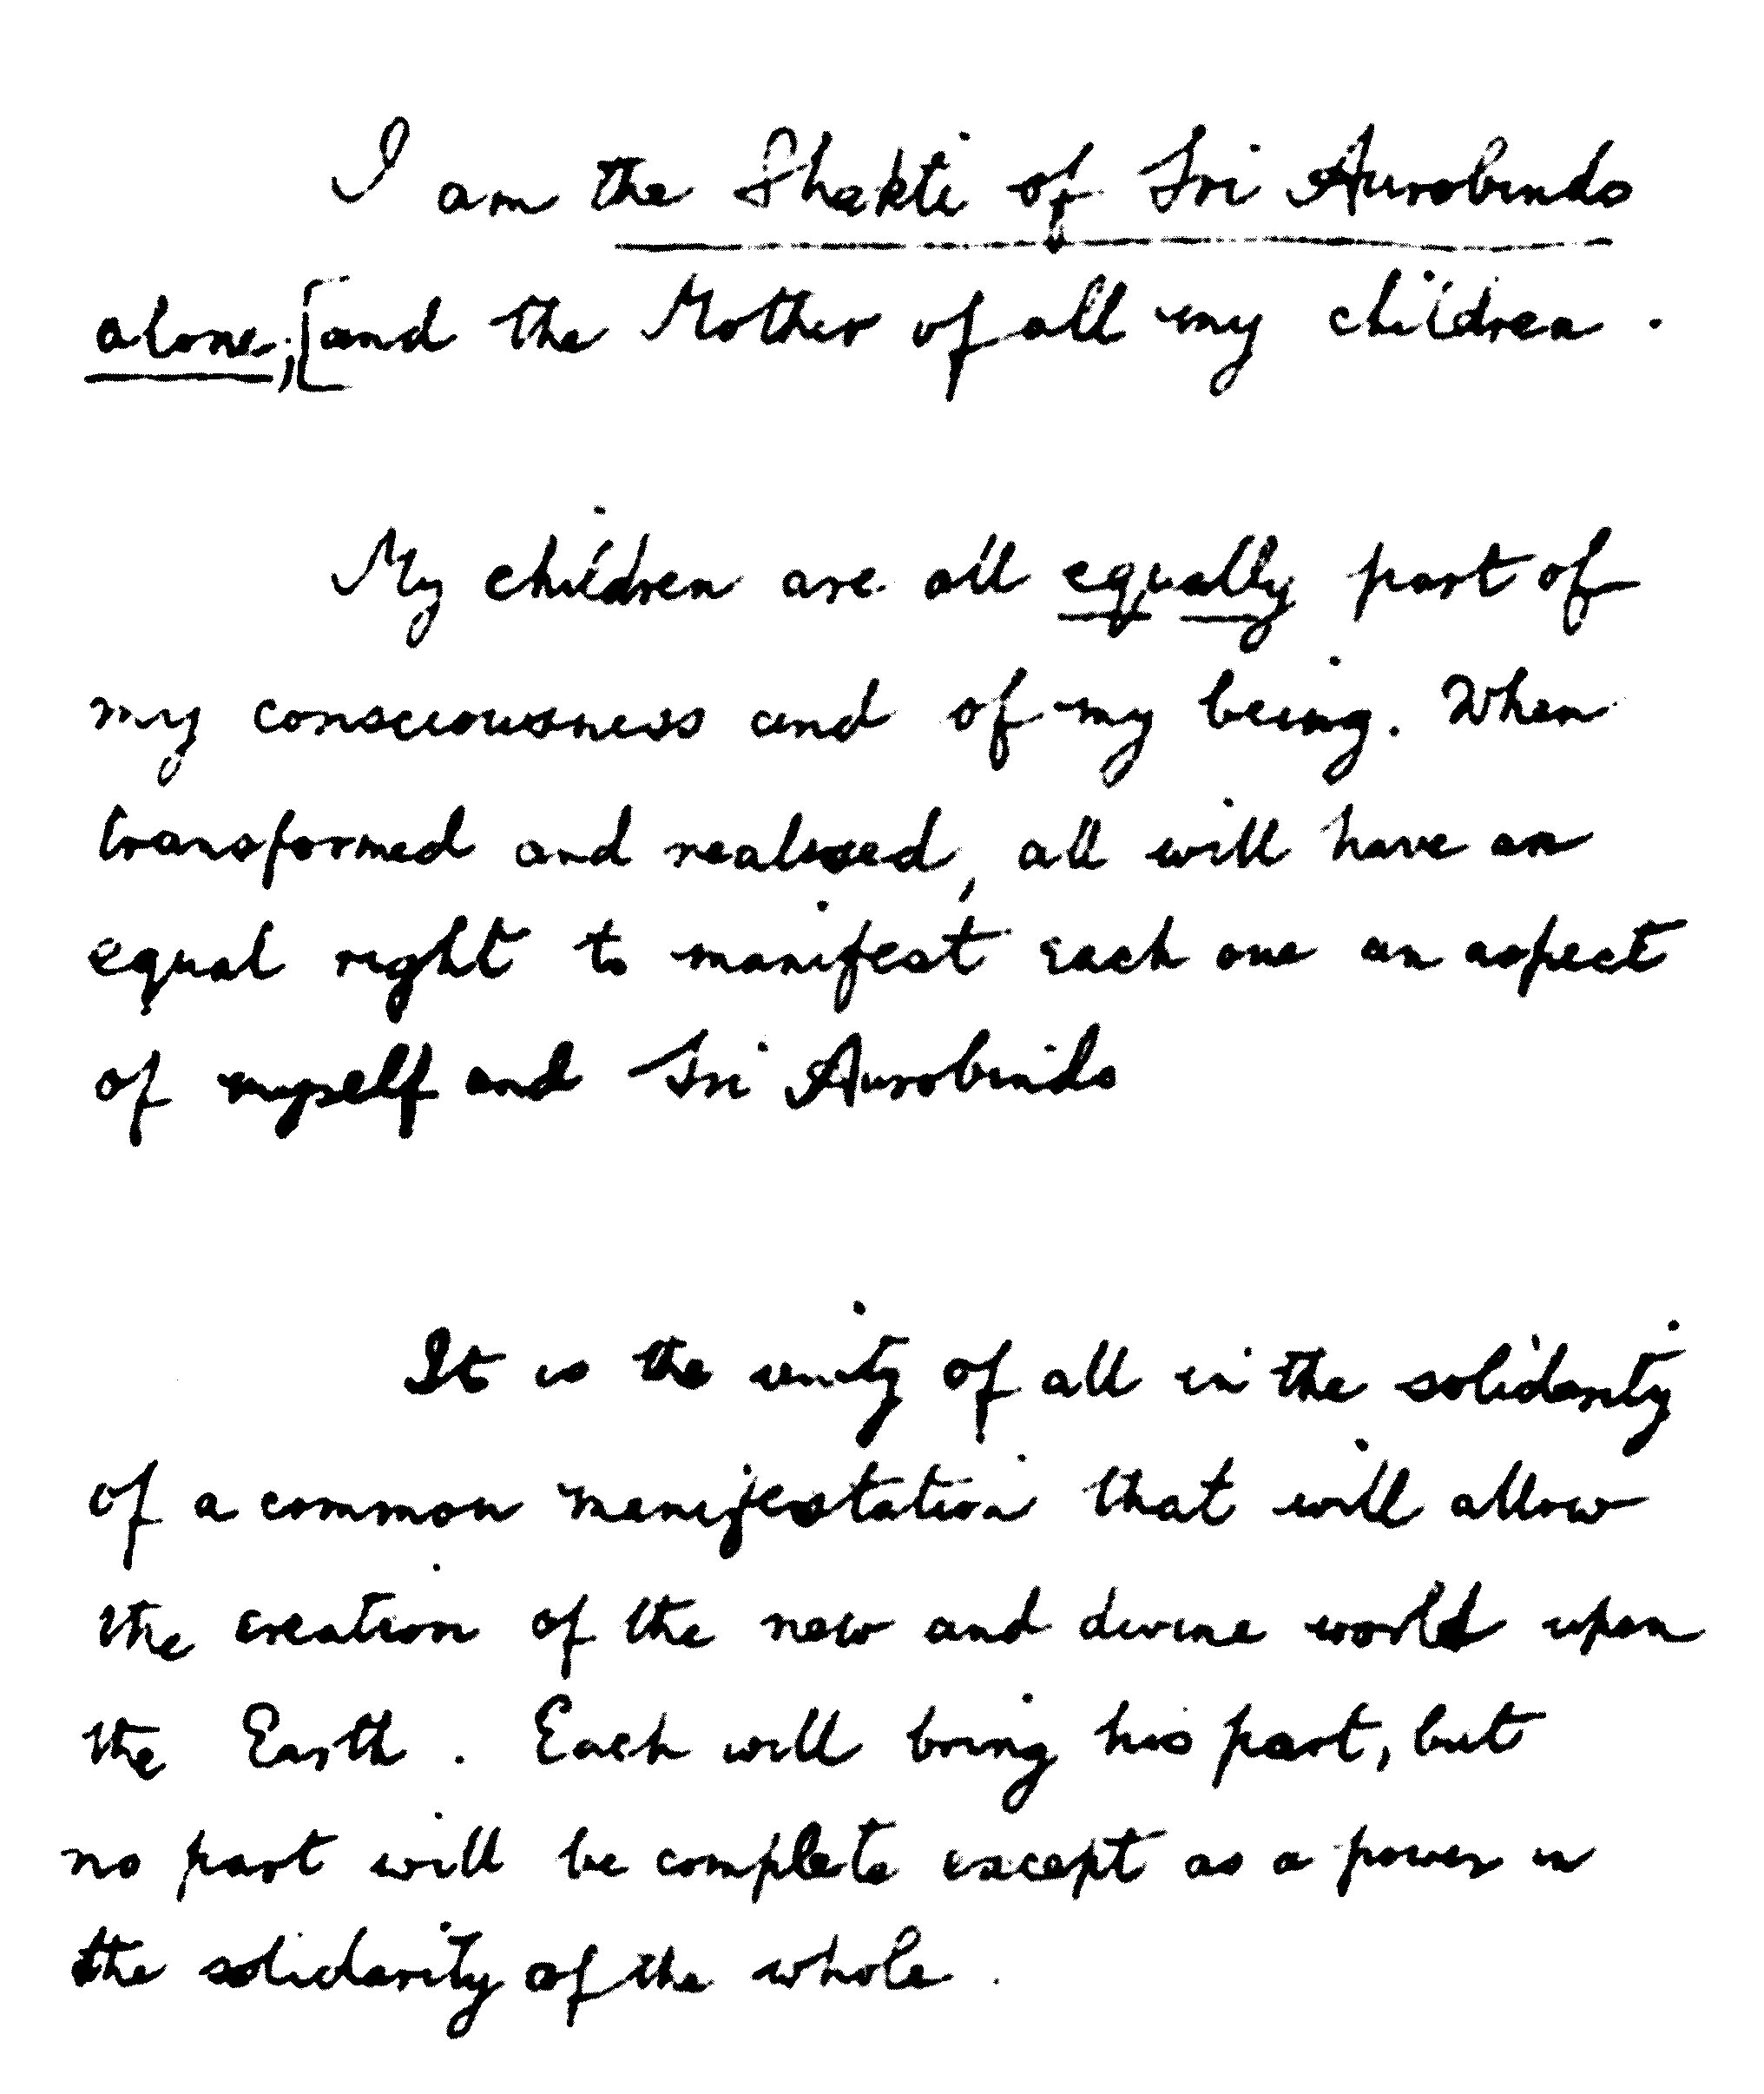 I am the Shakti of Sri Aurobindo
alone; [and the Mother of all my children.
My children are all equally part of
my consciousness and of my being. When
transformed and realised, all will have an
equal right to manifest each one an aspect
of myself and Sri Aurobindo
It is the unity of all in the solidarity
of a common manifestation that will allow
the creation of the new and divine world upon
the Earth. Each will bring his part, but
no part will be complete except as a power in
the solidarity of the whole.